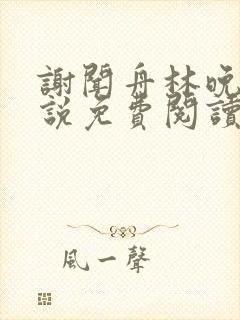 謝聞舟林晚
說免費閱讀
風一聲